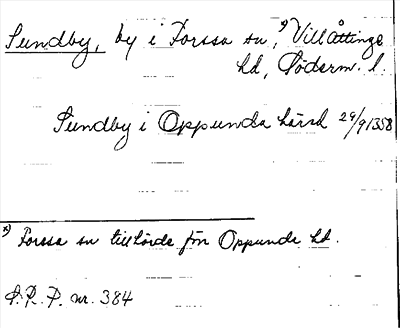 Sundby, by i Forssa sn, *) Villåttinge
hd, Söderm. l.
Sundby i Oppunda härad 29/9 1358
*) Forssa sn tillhörde förr Oppunda hd.
S.R.P. nr. 384